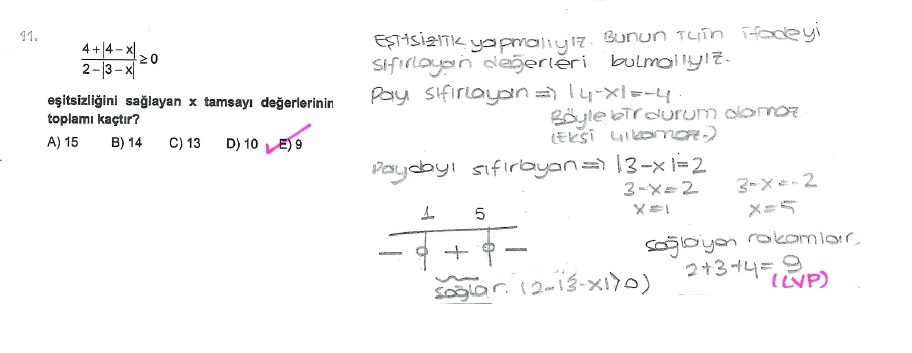 11.
4+|4-x|
2-|3-x| ≥0
eşitsizliğini sağlayan x tamsayı değerlerinin
toplamı kaçtır?
A) 15 B) 14 C) 13 D) 10 E) 9
Eşitsizlik yapmalıyız. Bunun için ifadeyi
sıfırlayan değerleri bulmalıyız.
Payı sıfırlayan ⇒ |4-x|=-4
Böyle bir durum olamaz
(Eksi çıkamaz.)
Paydayı sıfırlayan ⇒ |3-x|=2
3-x=2 3-x=-2
x=1 x=5
1 5
- + -
sağlar. (2-|3-x|>0)
sağlayan rakamlar,
2+3+4=9
(LVP)